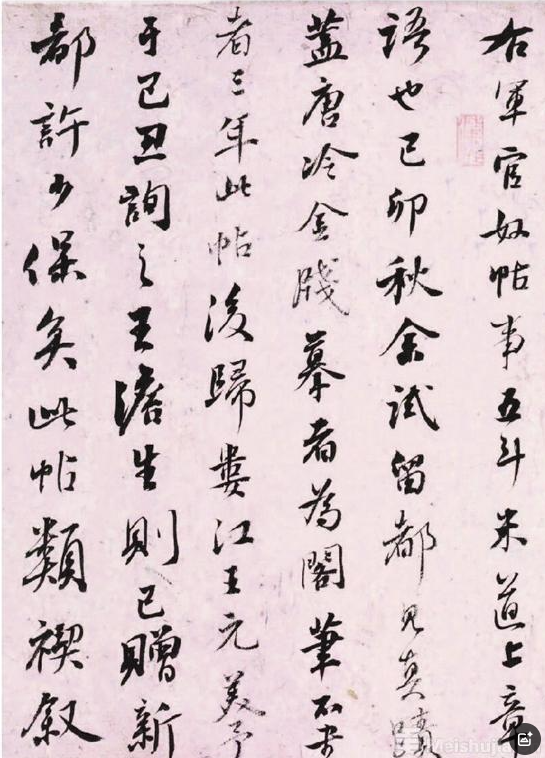 右軍官奴帖事五斗米道上章
語也己卯秋余試留都見真蹟
蓋唐冷金牋摹者為閣筆不書
者三年此帖後歸婁江王元美予
于己丑詢之王澹生則已贈新
都許少保矣此帖類禊叙